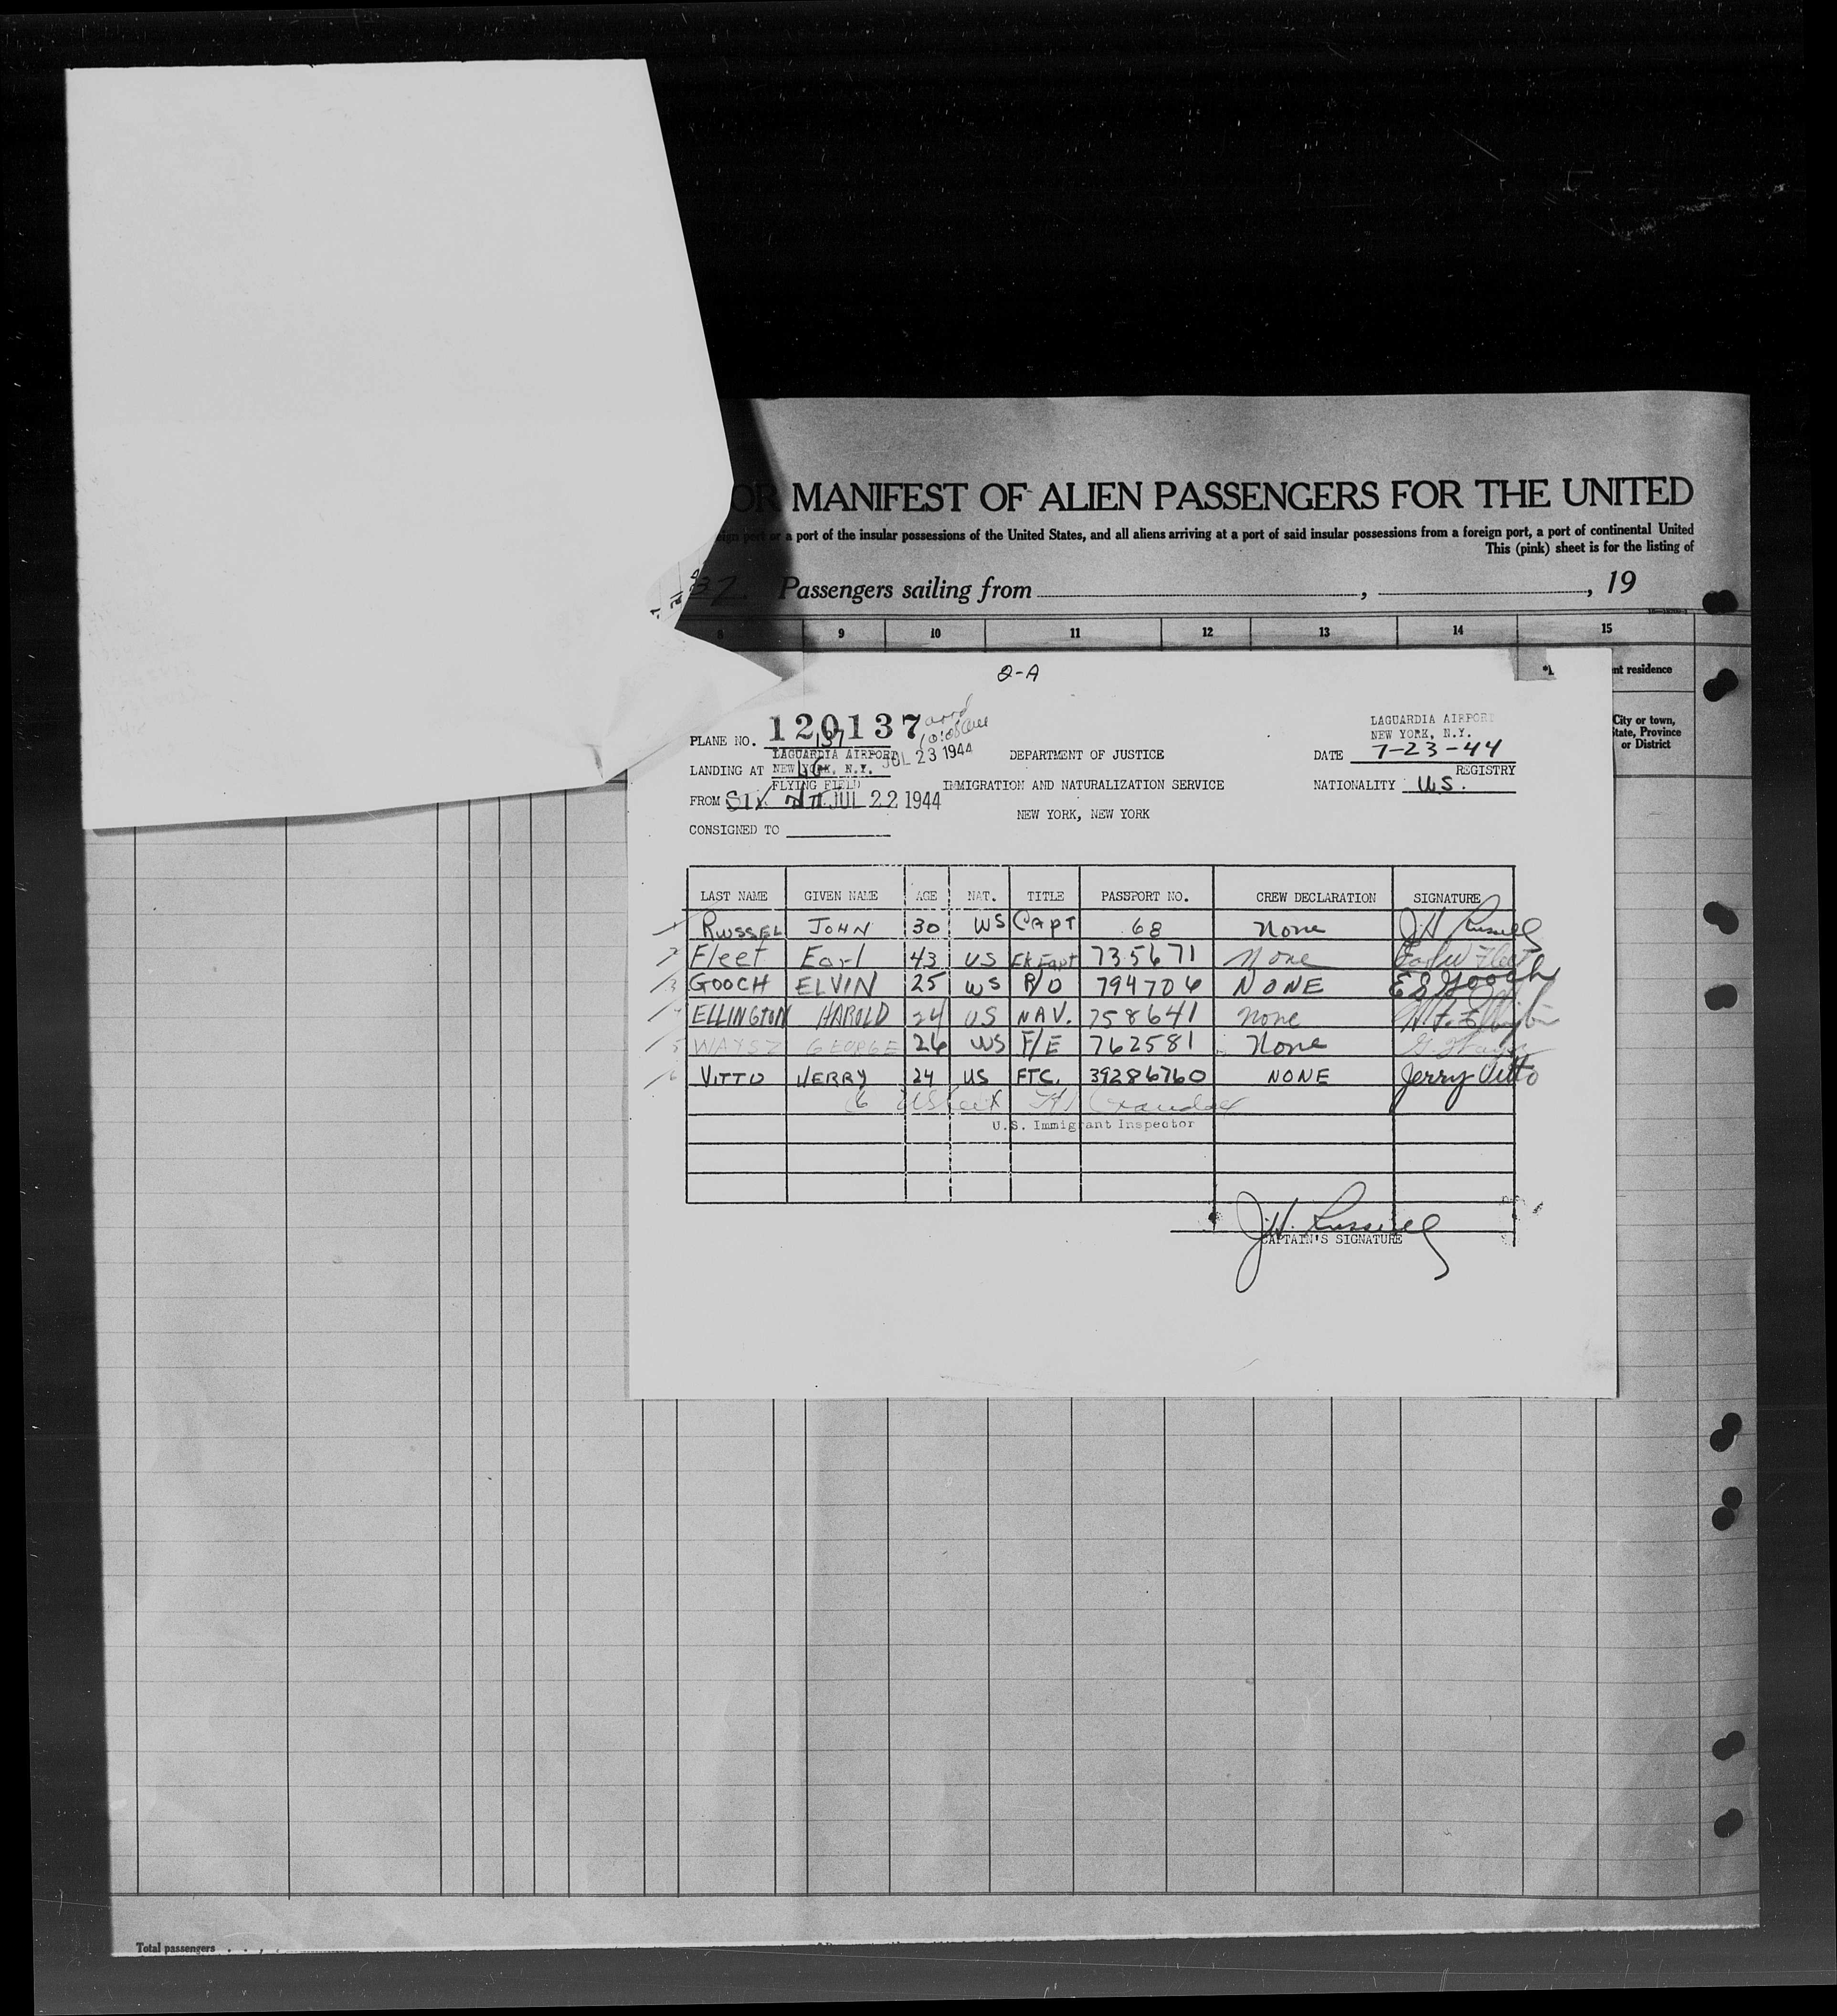 OR MANIFEST OF ALIEN PASSENGERS FOR THE UNITED
eign port or a port of the insular possessions of the United States, and all aliens arriving at a port of said insular possessions from a foreign port, a port of continental United
This (pink) sheet is for the listing of
Passengers sailing from , , 19
8 9 10 11 12 13 14 15
nt residence
City or town,
State, Province
or District
2-A
PLANE NO. 120137
137
LAGUARDIA AIRPORT
NEW YORK, N.Y.
LAGUARDIA AIRPORT JUL 23 1944
LANDING AT NEW YORK, N.Y.
LG
FLYING FIELD
DEPARTMENT OF JUSTICE
DATE 7-23-44
REGISTRY
IMMIGRATION AND NATURALIZATION SERVICE
NATIONALITY US.
FROM JUL 22 1944
NEW YORK, NEW YORK
CONSIGNED TO
LAST NAME GIVEN NAME AGE NAT. TITLE PASSPORT NO. CREW DECLARATION SIGNATURE
1 RUSSEL JOHN 30 US CAPT 68 None J.H. Russell
2 Fleet Earl 43 US 735671 None Earl W Fleet
3 GOOCH ELVIN 25 US R/O 794706 NONE E S Gooch
ELLINGTON HAROLD 24 US NAV. 758641 None H. F. Ellington
5 WAYSZ GEORGE 26 US F/E 762581 None
6 VITTO JERRY 24 US FTC. 39286760 NONE Jerry Vitto
6
U.S. Immigrant Inspector
J.H. Russell
CAPTAIN'S SIGNATURE
Total passengers